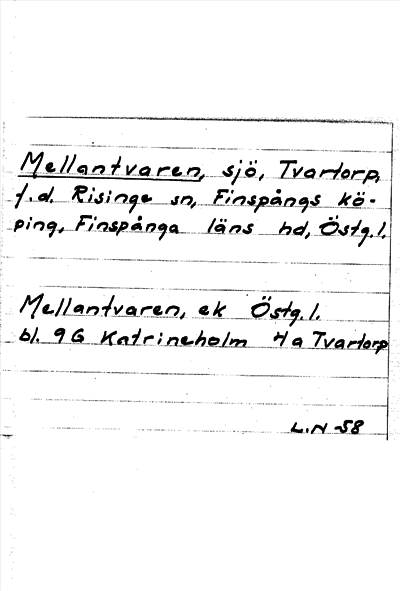 Mellantvaren, sjö, Tvartorp,
f.d. Risinge sn, Finspångs kö-
ping, Finspånga läns hd, Östg.l.
Mellantvaren, ek Östg.l.
bl. 9G Katrineholm 4a Tvartorp
L.N -58